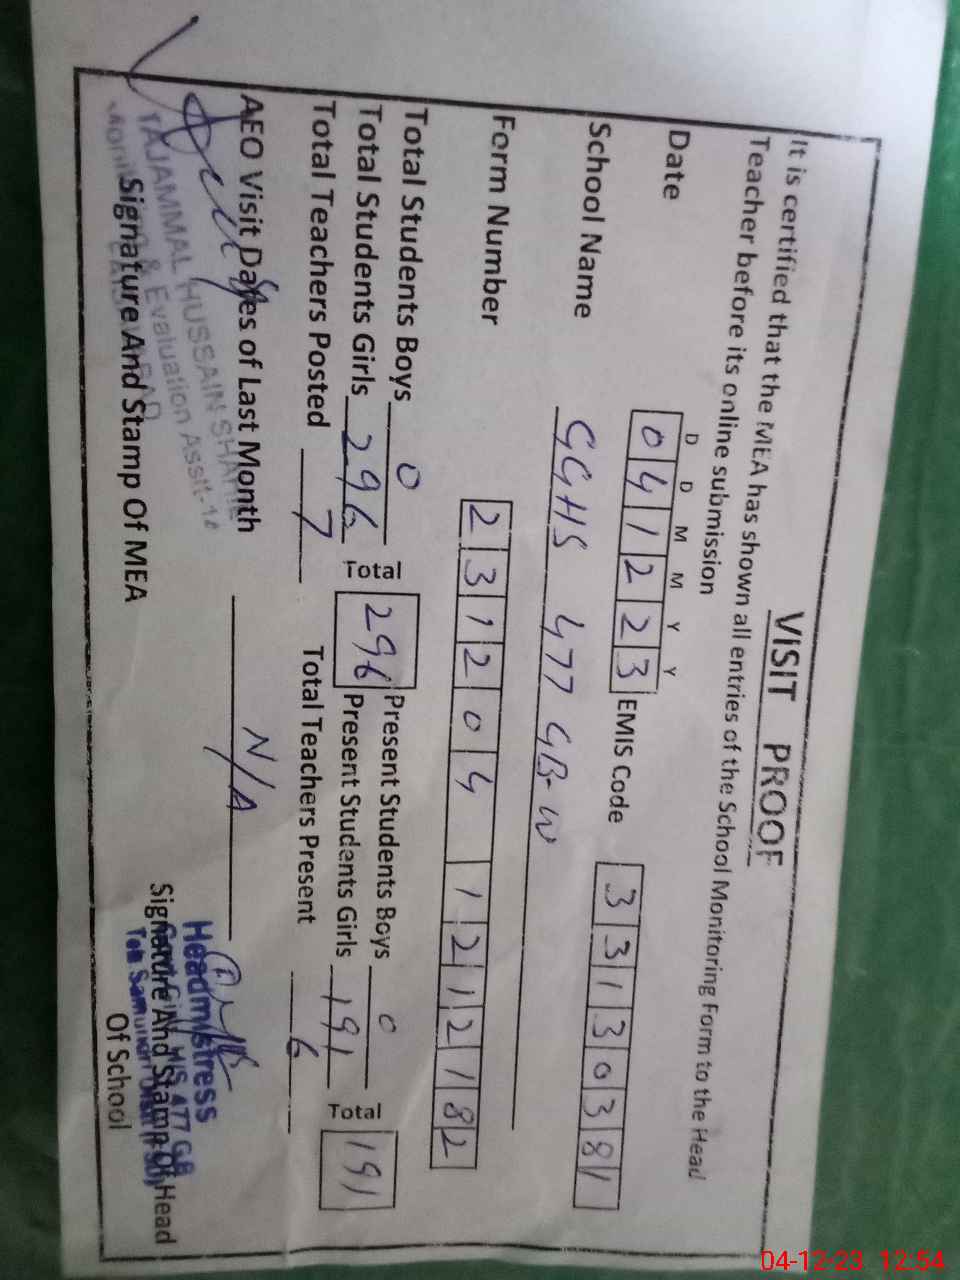 VISIT PROOF
It is certified that the MEA has shown all entries of the School Monitoring Form to the Head
Teacher before its online submission
D D M M Y Y
Date 041223 EMIS Code 33130381
School Name GGHS 477 GB-W
Form Number 231204 1212182
Total Students Boys 0 Present Students Boys 0
Total Students Girls 296 Total 296 Present Students Girls 191 Total 191
Total Teachers Posted 7 Total Teachers Present 6
AEO Visit Dates of Last Month N/A
TAJAMMAL HUSSAIN
& Evaluation Assit-
Signature And Stamp Of MEA
Headmistress
477 GB
Signature And Stamp Of Head
Of School
04-12-23 12:54